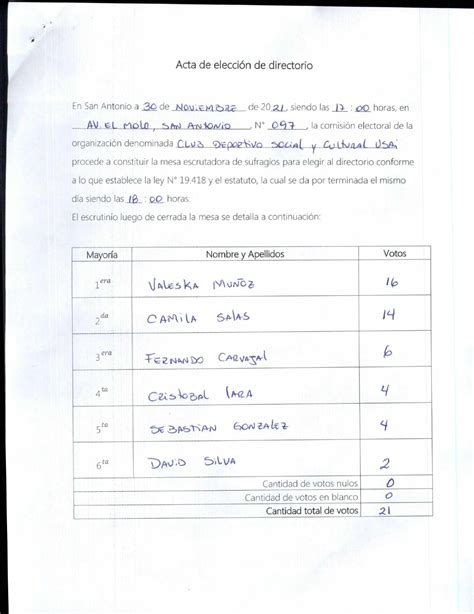 Acta de elección de directorio
En San Antonio a 30 de NOVIEMBRE de 2021, siendo las 17 : 00 horas, en
AV. EL MOLO, SAN ANTONIO, N° 097, la comisión electoral de la
organización denominada CLUB DEPORTIVO SOCIAL y CULTURAL USAI
procede a constituir la mesa escrutadora de sufragios para elegir al directorio conforme
a lo que establece la ley N° 19.418 y el estatuto, la cual se da por terminada el mismo
día siendo las 18 : 00 horas.
El escrutinio luego de cerrada la mesa se detalla a continuación:
Mayoría Nombre y Apellidos Votos
1era VALESKA MUÑOZ 16
2da CAMILA SALAS 14
3era FERNANDO CARVAJAL 6
4ta CRISTOBAL LARA 4
5ta SEBASTIAN GONZALEZ 4
6ta DAVID SILVA 2
Cantidad de votos nulos 0
Cantidad de votos en blanco 0
Cantidad total de votos 21